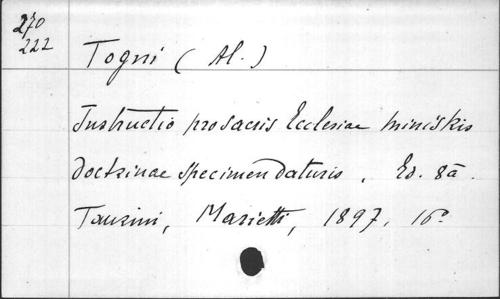 270
222
Togni (Al.)
Instructio pro sacris Ecclesiae miniskis
doctrinae specimen daturis. Ed. 8a.
Taurini, Marietti, 1897, 16°